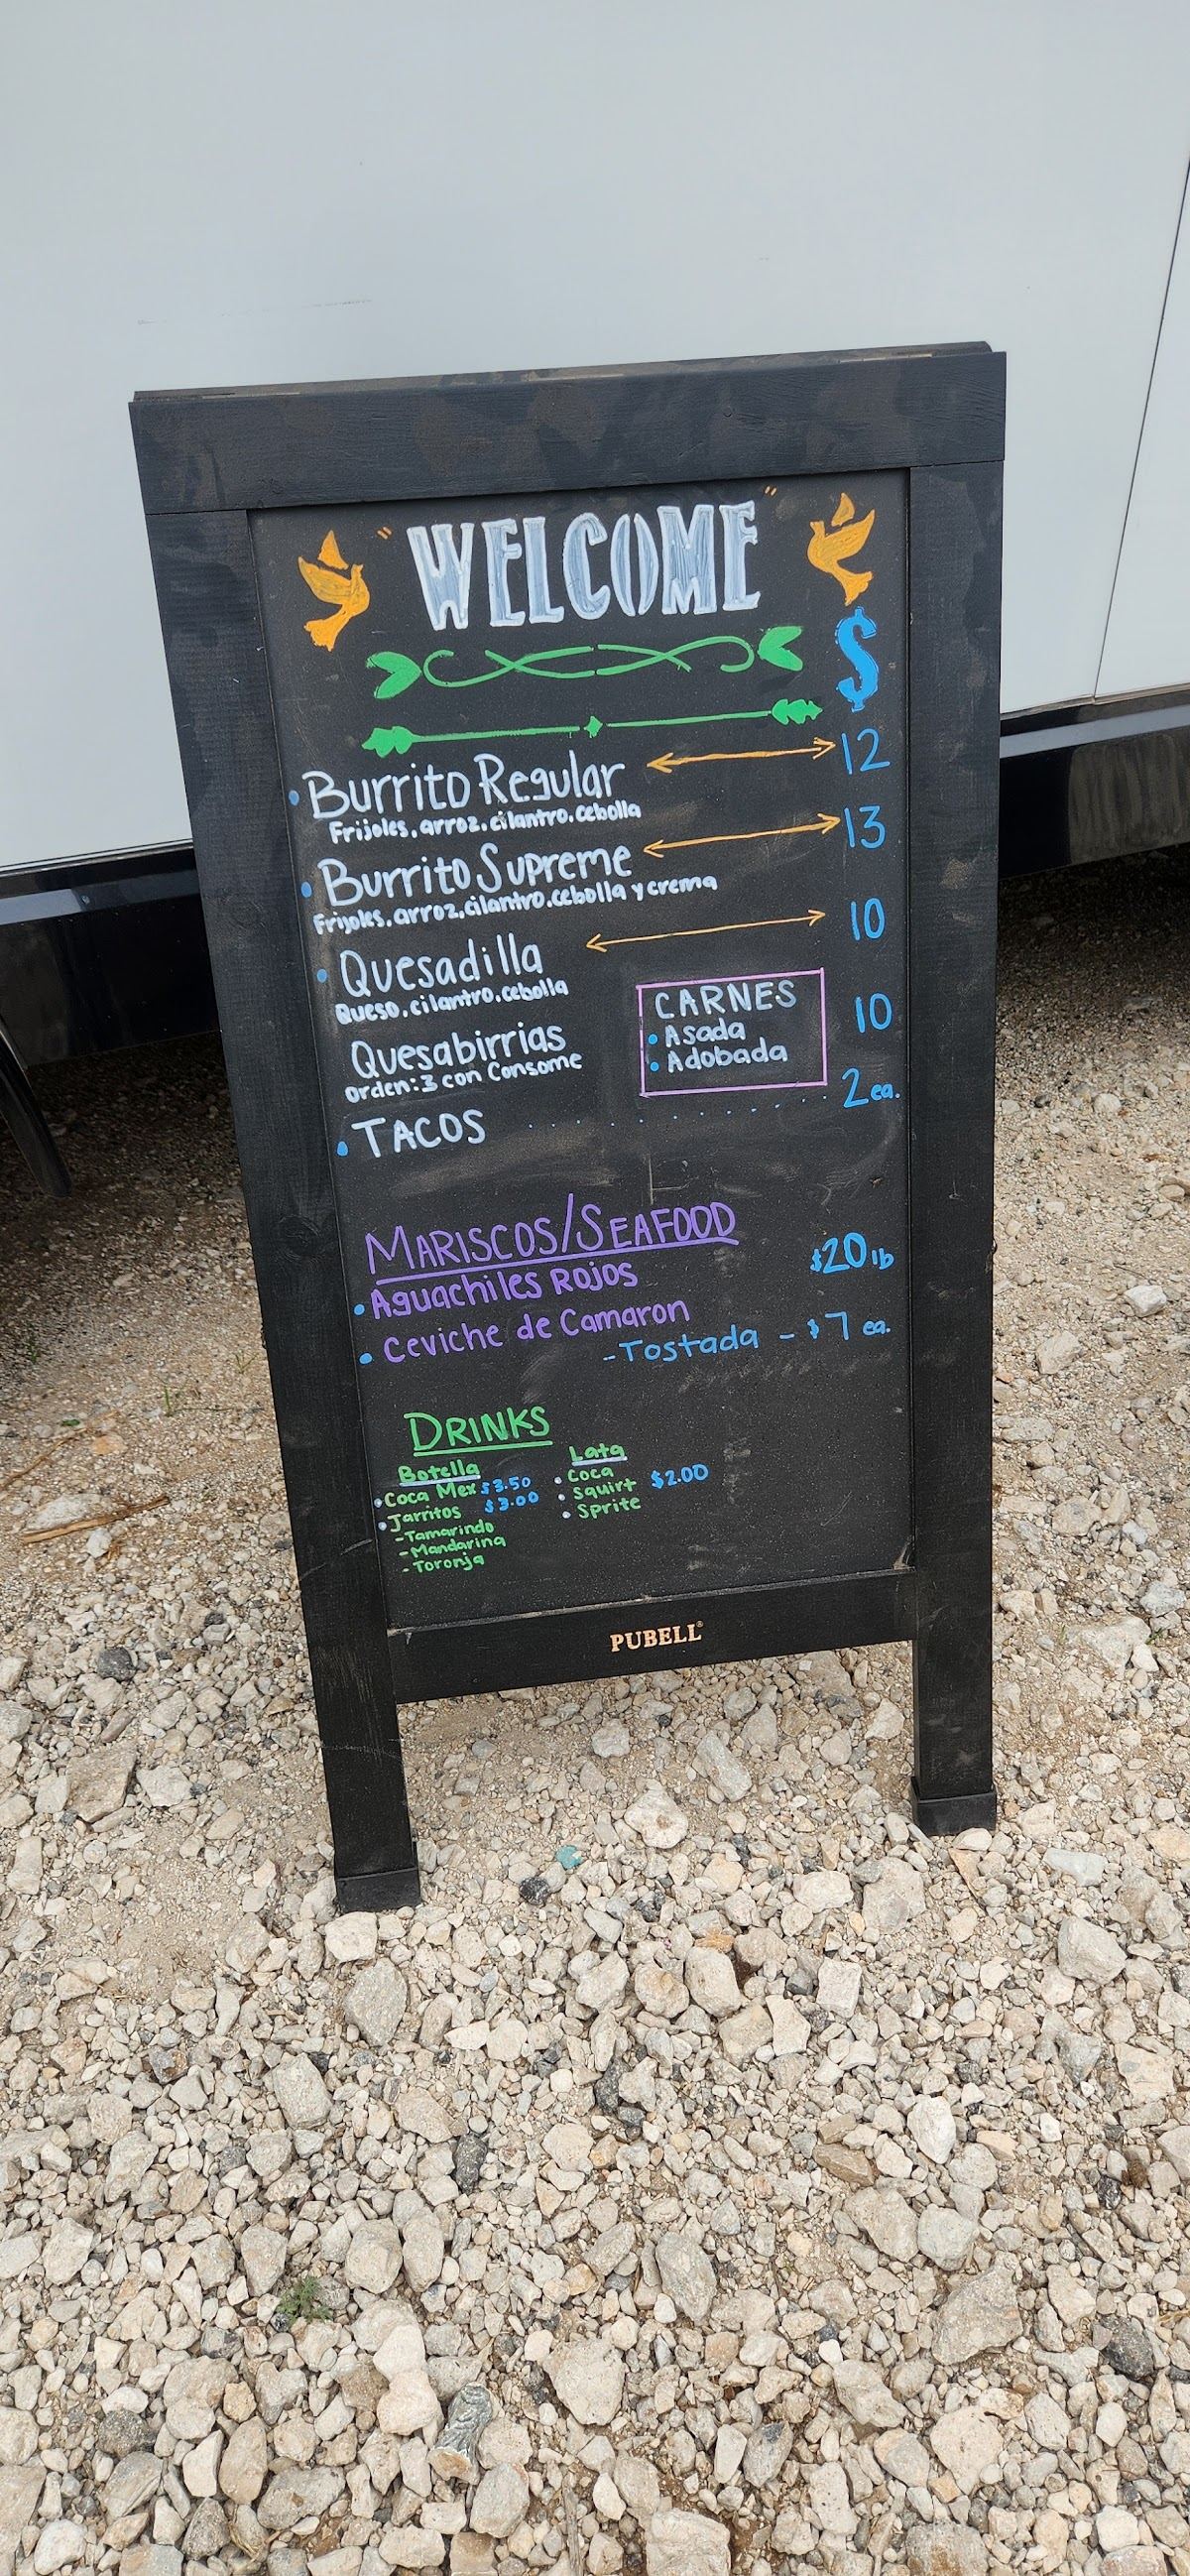 "WELCOME"
$
Burrito Regular 12
Frijoles, arroz, cilantro, cebolla
Burrito Supreme 13
Frijoles, arroz, cilantro, cebolla y crema
Quesadilla 10
Queso, cilantro, cebolla
CARNES
• Asada
• Adobada
Quesabirrias 10
Orden: 3 con Consome
TACOS 2 ea.
MARISCOS/SEAFOOD
• Aguachiles Rojos $20 lb
• Ceviche de Camaron
- Tostada - $7 ea.
DRINKS
Botella
• Coca Mex $3.50
• Jarritos $3.00
- Tamarindo
- Mandarina
- Toronja
Lata
• Coca
• Squirt $2.00
• Sprite
PUBELL®